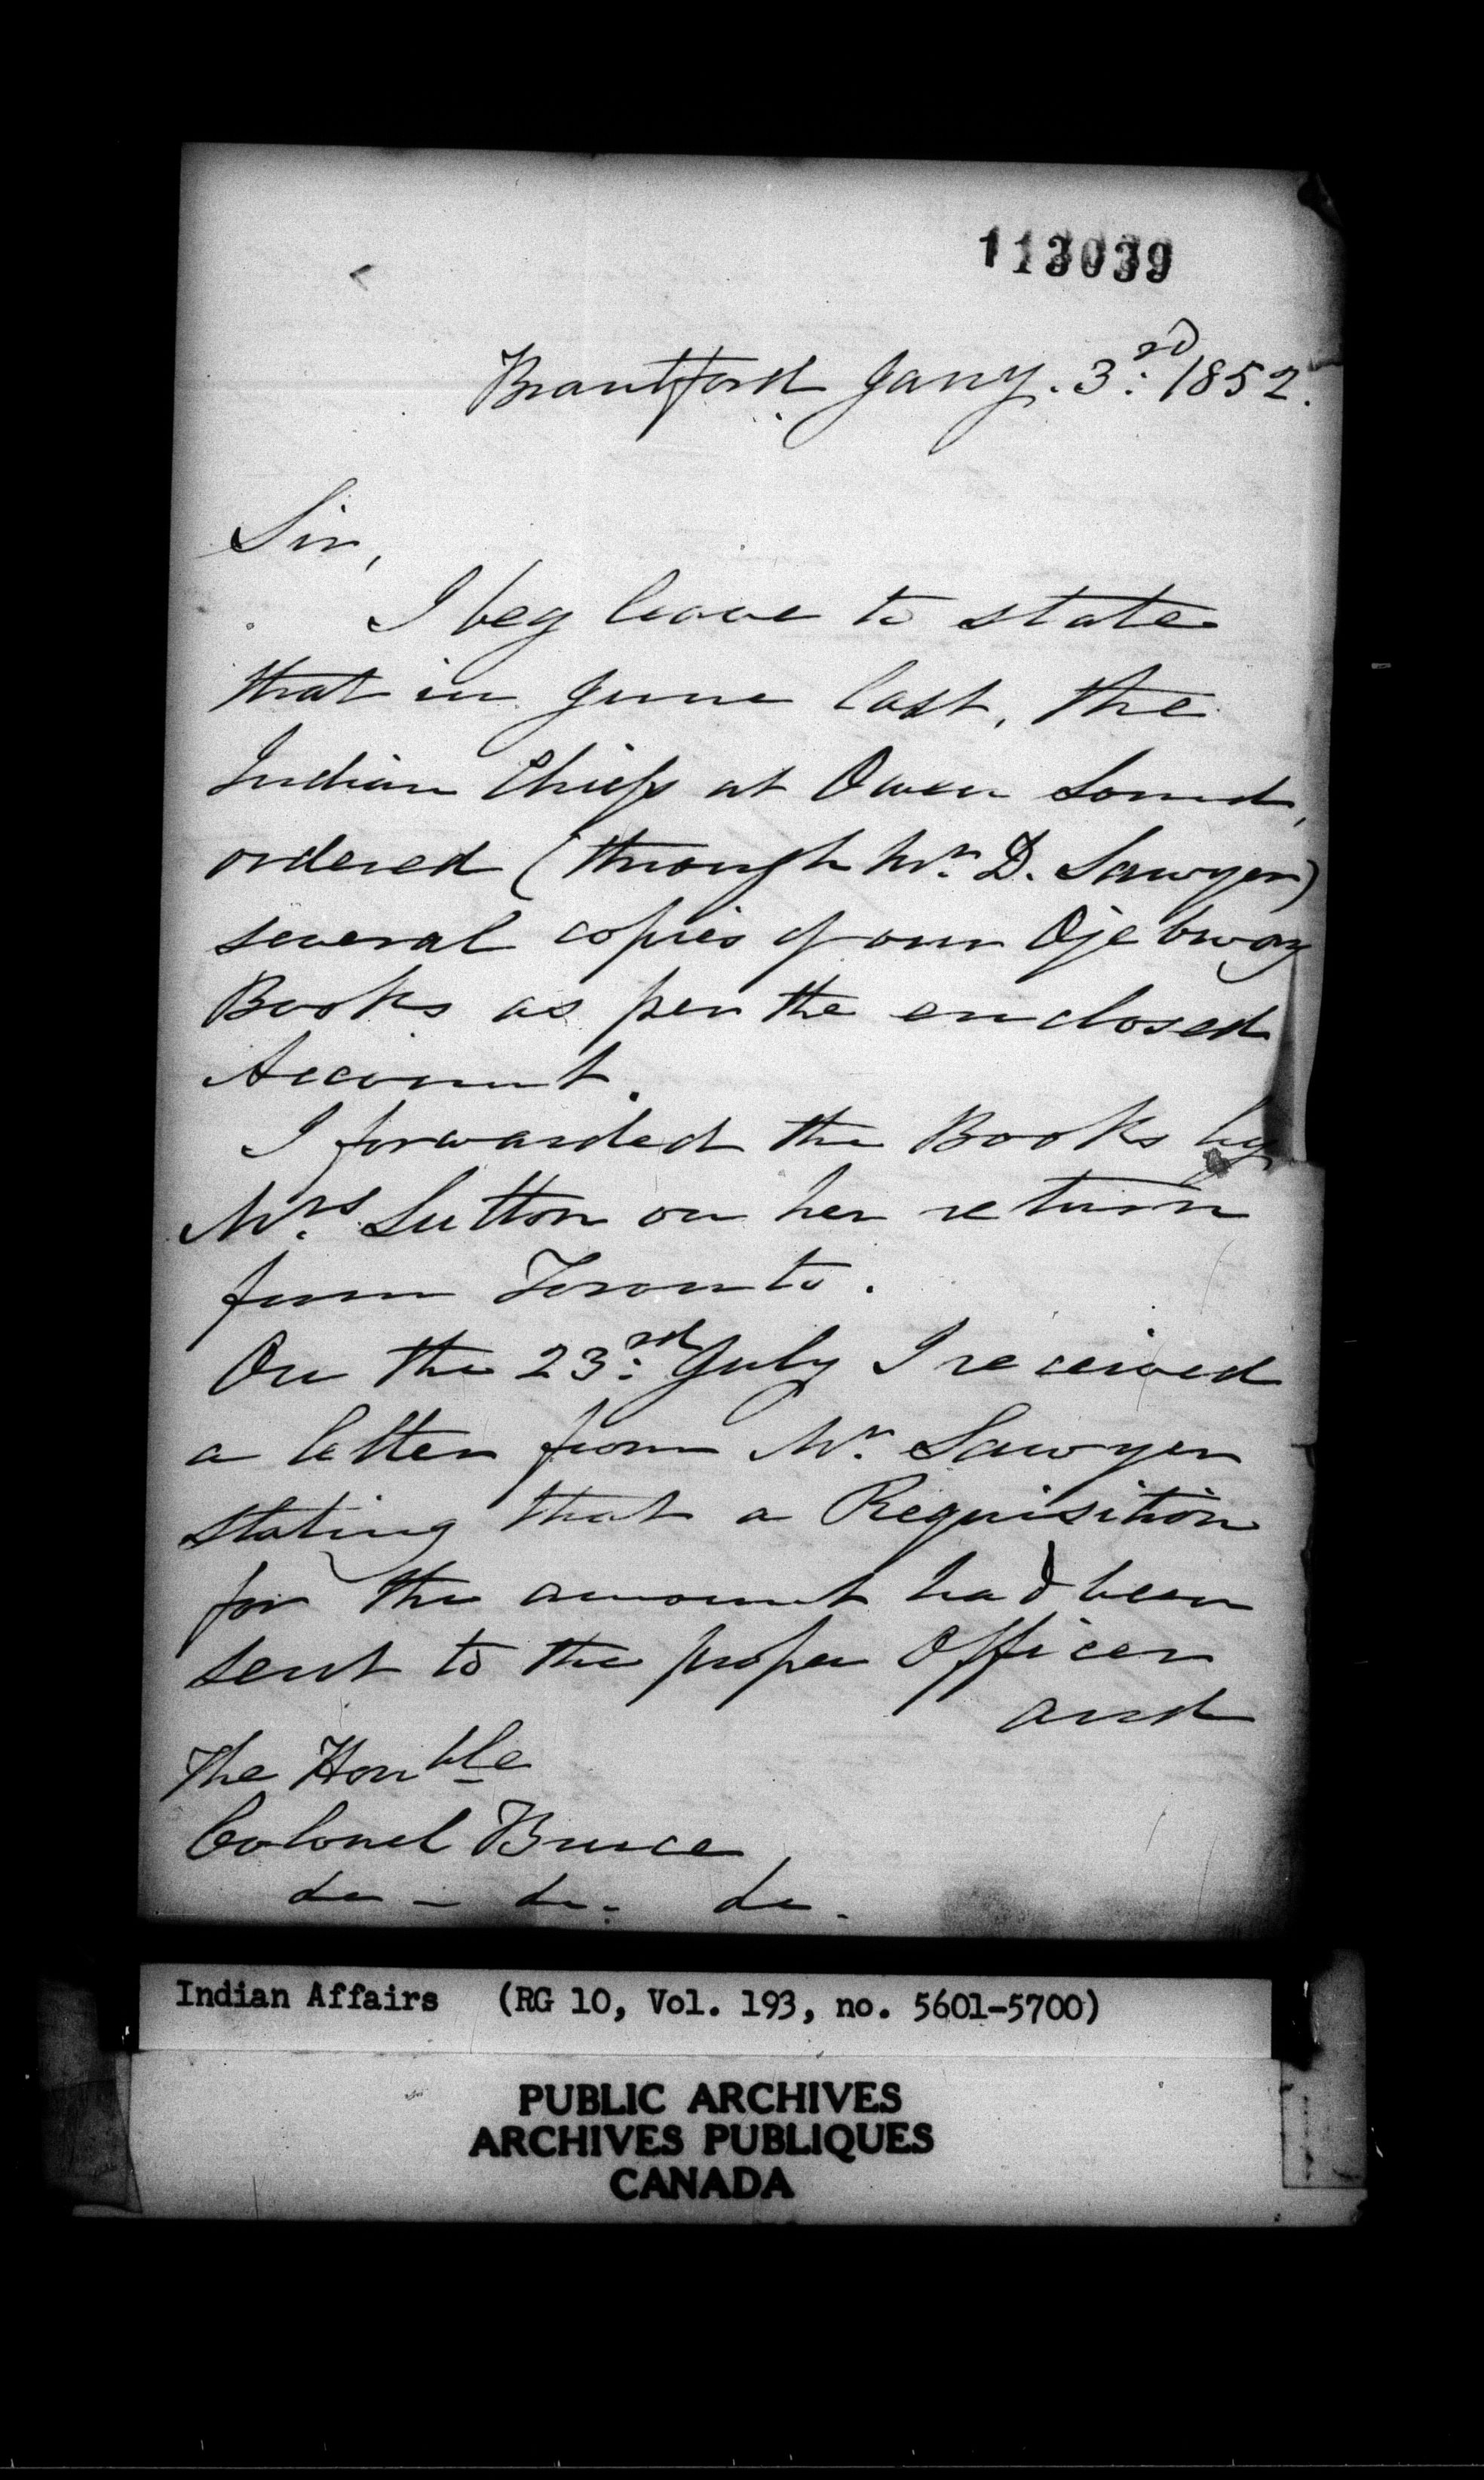 113039
Brantford Jany. 3rd 1852.
Sir,
I beg leave to state
that in June last, the
Indian Chiefs at Owen Sound,
ordered (through Mr. D. Sawyer)
several copies of our Ojebway
Books as per the enclosed
Account.
I forwarded the Books by
Mrs. Sutton on her return
from Toronto.
On the 23rd July I received
a letter from Mr. Sawyer
stating that a Requisition
for the amount had been
sent to the proper Officer
and
The Honble
Colonel Bruce,
&c - &c. &c.
Indian Affairs (RG 10, Vol. 193, no. 5601-5700)
PUBLIC ARCHIVES
ARCHIVES PUBLIQUES
CANADA